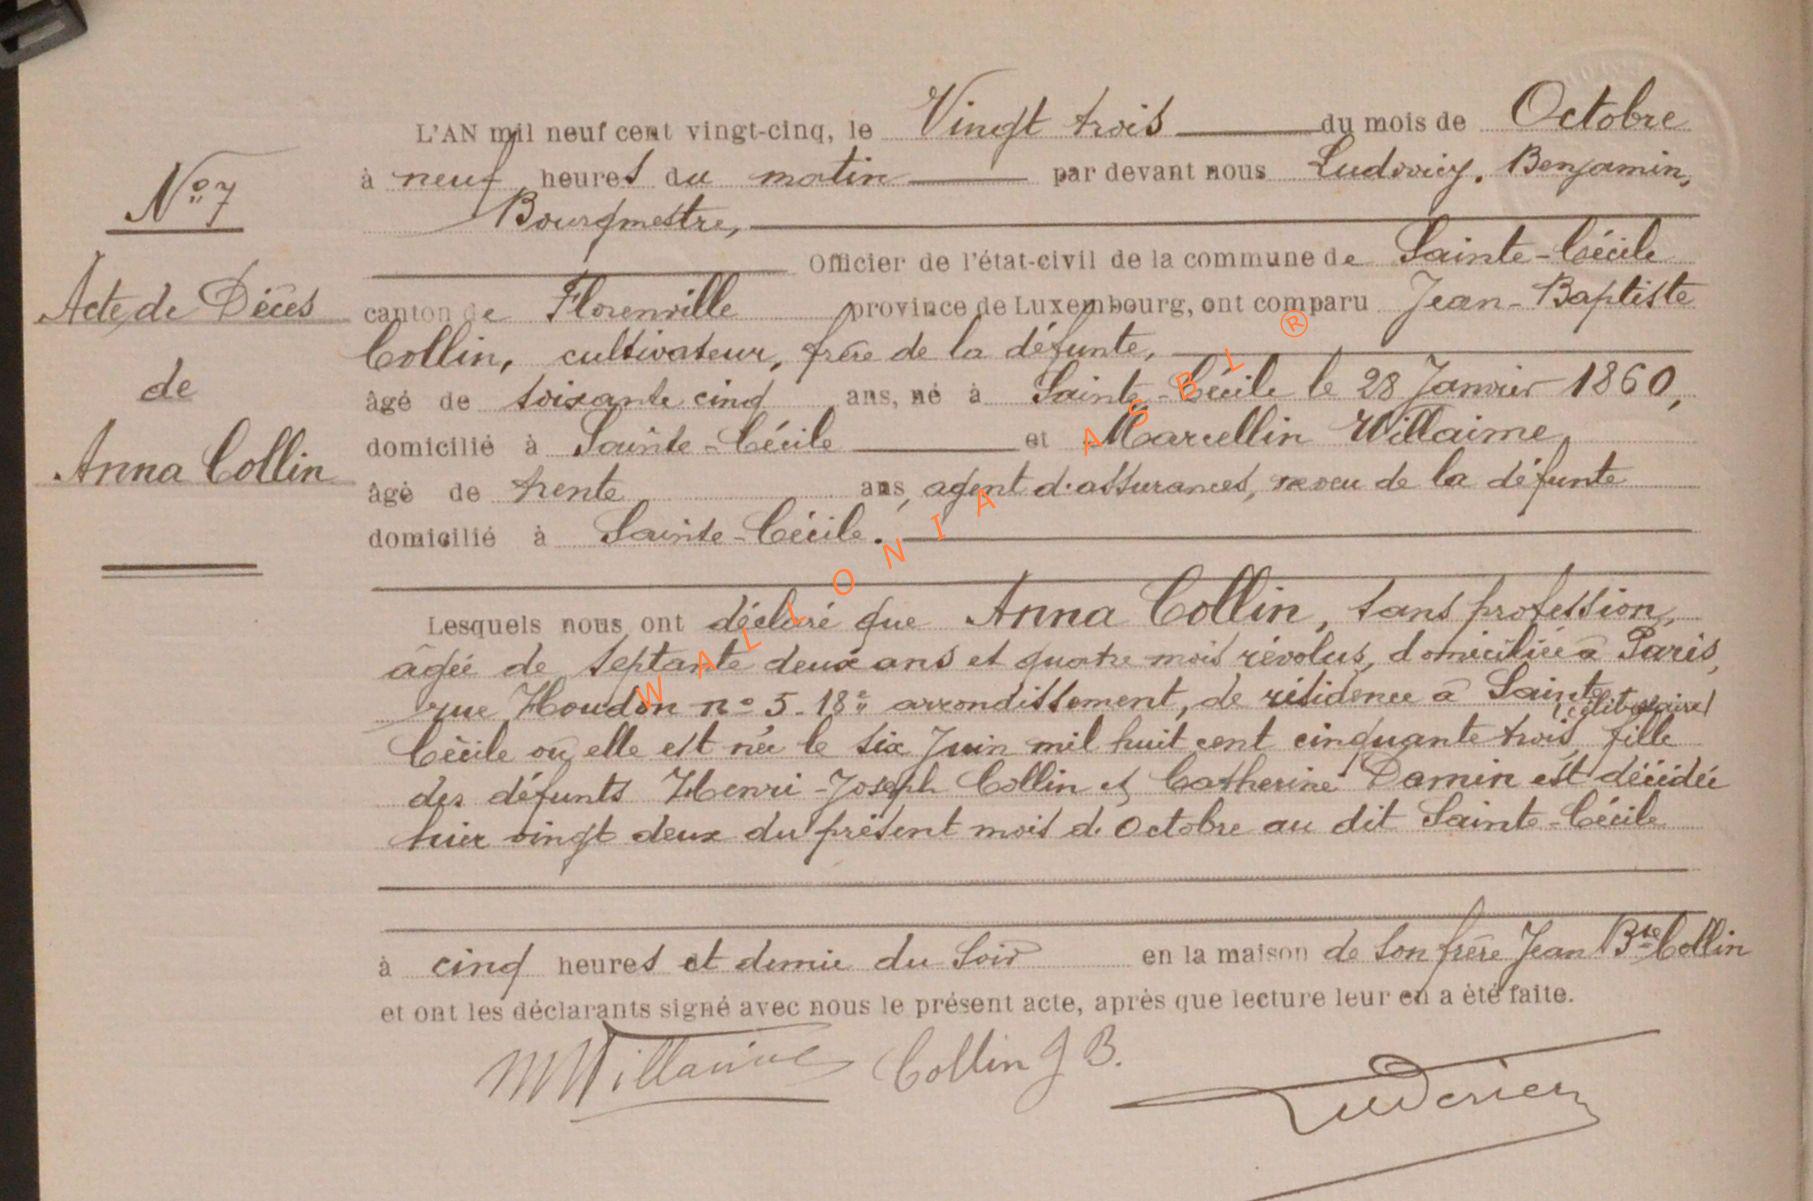 L'AN mil neuf cent vingt-cinq, le Vingt trois du mois de Octobre
à neuf heures du matin par devant nous Ludovicy, Benjamin,
Bourgmestre,
Officier de l'état-civil de la commune de Sainte-Cécile
canton de Florenville province de Luxembourg, ont comparu Jean-Baptiste
Collin, cultivateur, frère de la défunte,
âgé de soixante cinq ans, né à Sainte-Cécile le 28 Janvier 1860,
domicilié à Sainte-Cécile et Marcellin Willaime,
âgé de trente ans, agent d'assurances, neveu de la défunte
domicilié à Sainte-Cécile.
N° 7
Acte de Décès
de
Anna Collin
Lesquels nous ont déclaré que Anna Collin, sans profession,
âgée de septante deux ans et quatre mois révolus, domiciliée à Paris,
rue Houdon n° 5-18e arrondissement, de résidence à Sainte
(célibataire)
Cécile où elle est née le six Juin mil huit cent cinquante trois, fille
des défunts Henri-Joseph Collin et Catherine Damin est décédée
hier vingt deux du présent mois d'Octobre au dit Sainte-Cécile
à cinq heures et demie du soir en la maison de son frère Jean Bte Collin
et ont les déclarants signé avec nous le présent acte, après que lecture leur en a été faite.
MWillaime Collin J B.
Ludovicy
WALLONIA ASBL ®